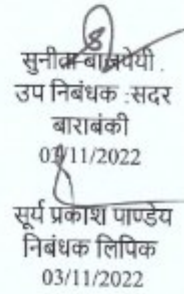 सुनीता बाजपेयी .
उप निबंधक :सदर
बाराबंकी
03/11/2022
सूर्य प्रकाश पाण्डेय
निबंधक लिपिक
03/11/2022